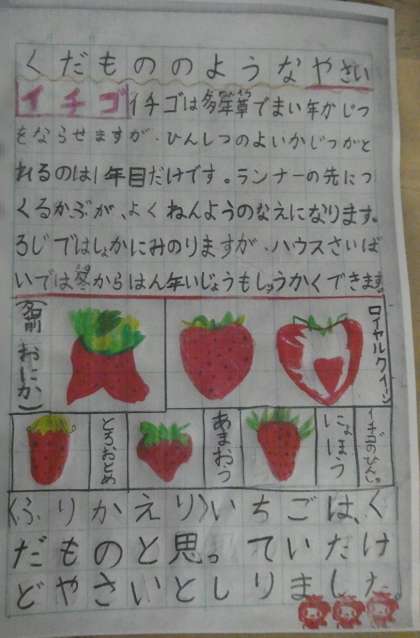 くだもののようなやさい
イチゴ イチゴは多年草でまい年かじつ
をならせますが、ひんしつのよいかじつがと
れるのは1年目だけです。ランナーの先につ
くるかぶが、よくねんようのなえになります。
ろじではしょかにみのりますが、ハウスさいば
いでは冬からはん年いじょうもしゅうかくできます。
ロイヤルクイーン
(名前 おにか)
イチゴのひんしゅ
にょほう
あまおう
とちおとめ
(ふりかえり)いちごは、く
だものと思っていたけ
どやさいとしりました。